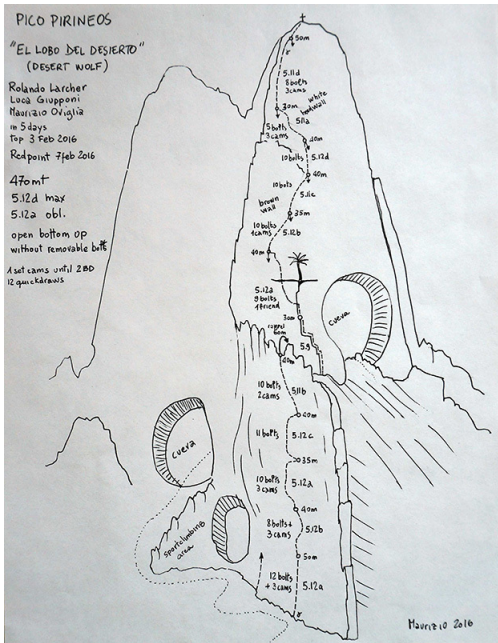 PICO PIRINEOS
"EL LOBO DEL DESIERTO"
(DESERT WOLF)
Rolando Larcher
Luca Giupponi
Maurizio Oviglia
in 5 days
top 3 Feb 2016
Redpoint 7feb 2016
470mt
5.12d max
5.12a obl.
open bottom up
without removable bolts
1 set cams until 2BD
12 quickdraws
50m
5.11d
8bolts
3cams
30m
white
headwall
5.11a
5 bolts
3 cams
40m
10bolts
5.12d
40m
10bolts
5.11c
brown
wall
35m
10bolts
1cams
5.12b
40m
5.12a
9bolts
1friend
30m
cueva
rappel
60m
5.9
40m
10 bolts
2cams
5.11b
40m
11 bolts
5.12c
35m
cueva
10bolts
3 cams
5.12a
40m
8bolts+
3 cams
5.12b
sportclimbing
area
50m
12 bolts
+ 3cams
5.12a
Maurizio 2016